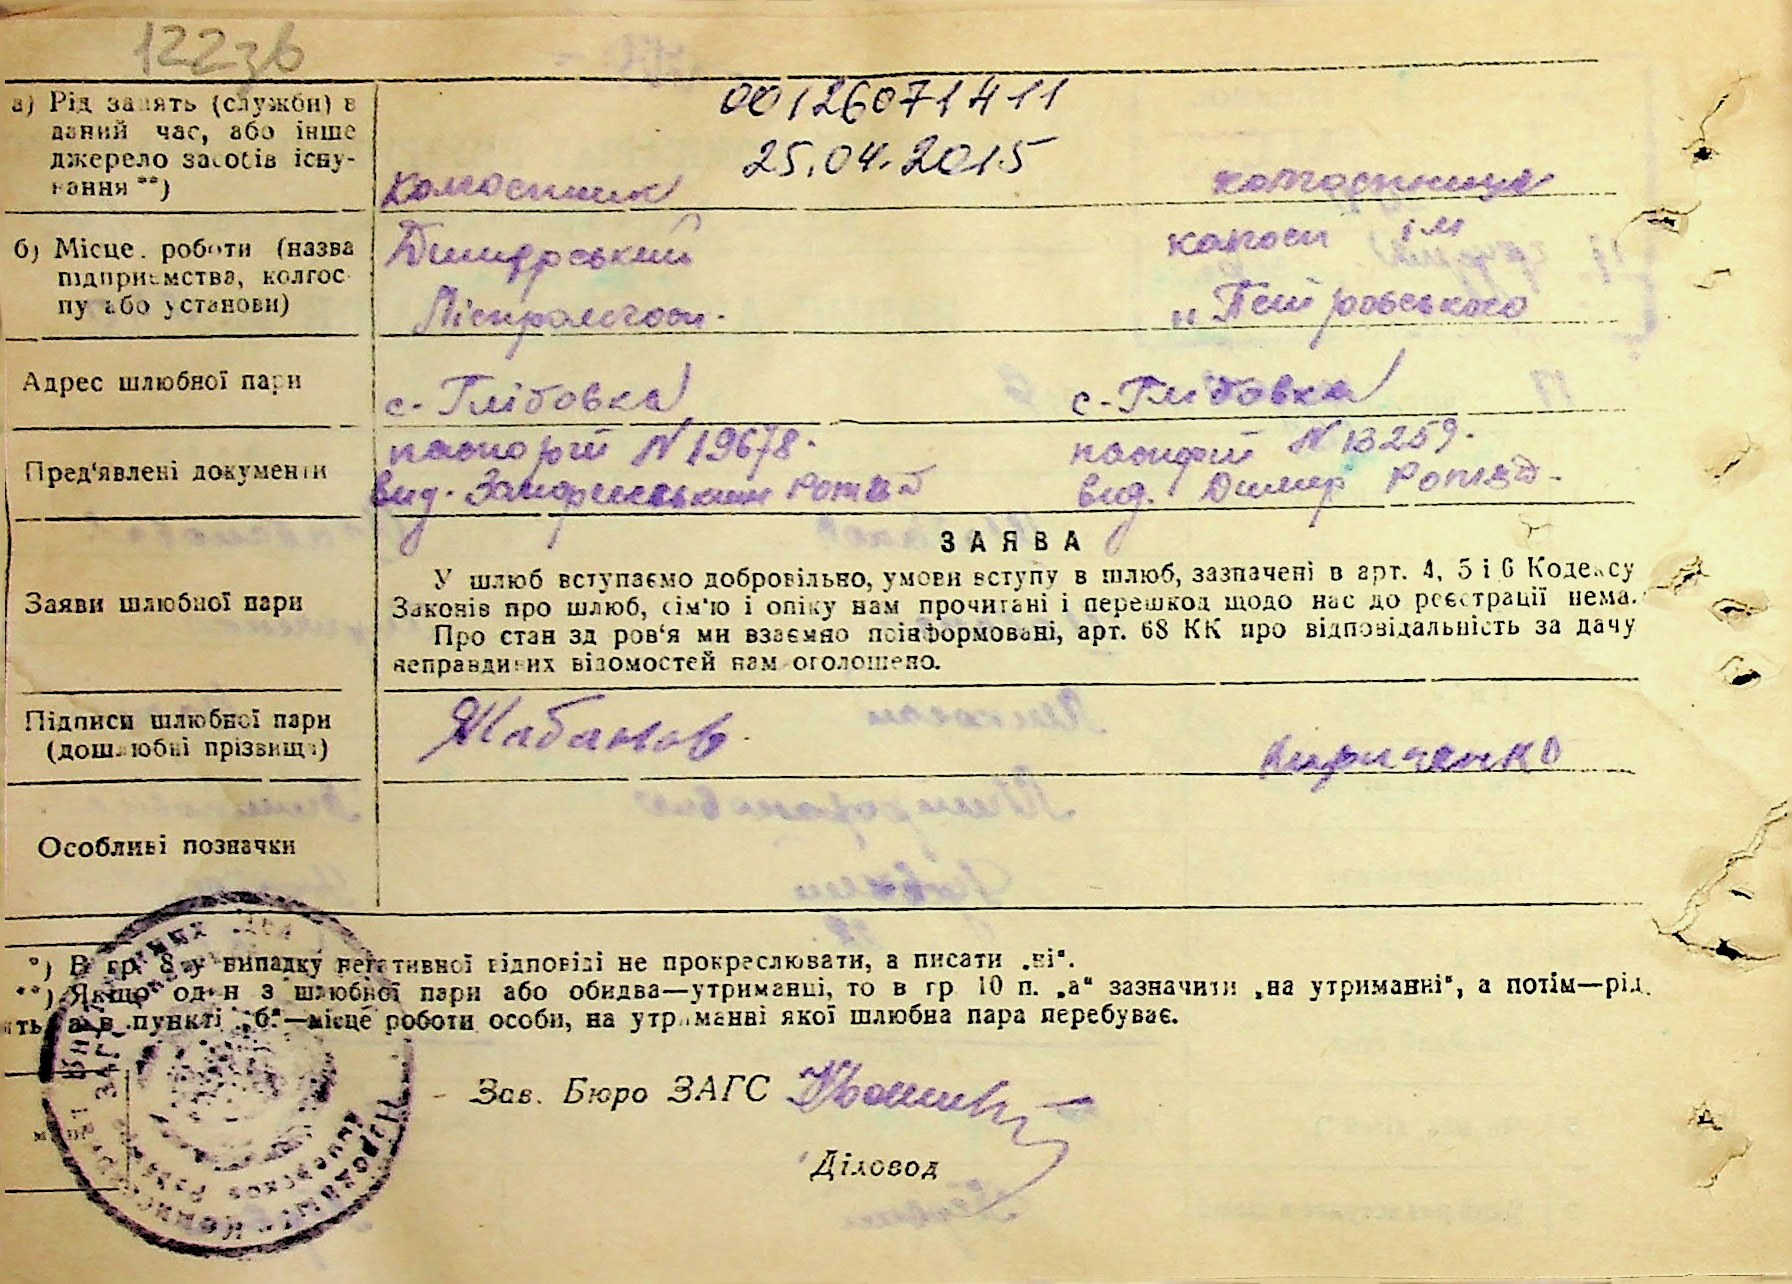 122зв
00126071411
25.04.2015
а) Рід занять (служби) в даний час, або інше джерело засобів існування **)
колгоспник
колгоспниця
б) Місце роботи (назва підприємства, колгоспу або установи)
Димирський
Ліспромгосп.
колгосп ім
"Петровського
Адрес шлюбної пари
с-Глібовка
с-Глібовка
Пред'явлені документи
паспорт N 19678.
вид.
паспорт N 13259.
вид. Димир
ЗАЯВА
Заяви шлюбної пари
У шлюб вступаємо добровільно, умови вступу в шлюб, зазначені в арт. 4, 5 і 6 Кодексу
Законів про шлюб, сім'ю і опіку нам прочитані і перешкод щодо нас до реєстрації нема.
Про стан здоров'я ми взаємно поінформовані, арт. 68 КК про відповідальність за дачу
неправдивих відомостей нам оголошено.
Підписи шлюбної пари (дошлюбні прізвища)
Жабанов
Кириченко
Особливі позначки
*) В гр. 8 у випадку негативної відповіді не прокреслювати, а писати „ні“.
**) Якщо один з шлюбної пари або обидва—утриманці, то в гр 10 п. „а“ зазначити „на утриманні“, а потім—рід
а в пункті „б“—місце роботи особи, на утриманні якої шлюбна пара перебуває.
Зав. Бюро ЗАГС
Діловод